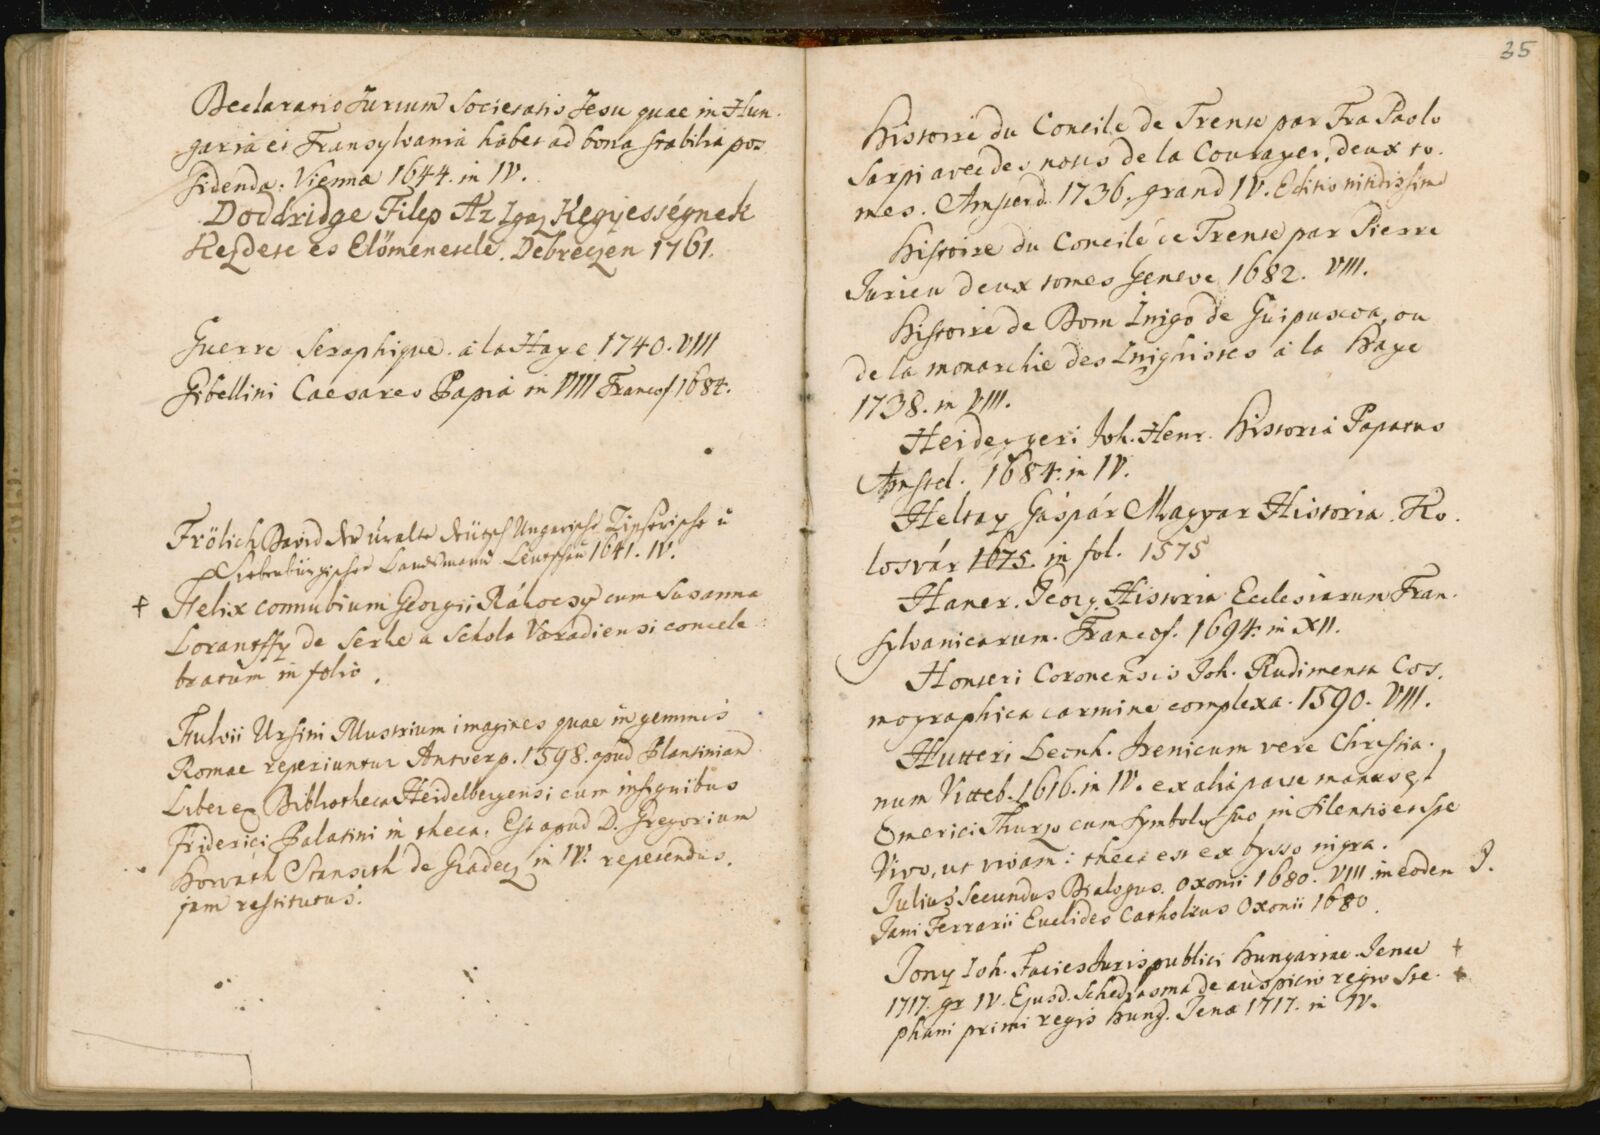 Declaratio Jurium Societatis Jesu quae in Hun-
garia et Transylvania habet ad bona stabilia pos-
sidenda. Vienna 1644. in IV.
Doddridge Filep Az Igaz Kegyességnek
Kezdete és Elömenetele. Debreczen 1761.
Guerre Seraphique. a la Haye 1740. VIII
Gibellini Caesares Papia in VIII Francof 1684.
Frölich David der uralte deütsch Ungarische Zipserische u
Siebenbürgische Landsmann Leutschau 1641. IV.
+ Felix connubium Georgii Rákoczy cum Susanna
Lorantffy de Serke a Schola Varadiensi concele
bratum in folio.
Fulvii Ursini Illustrium imagines quae in gemmis
Romae reperiuntur Antverp. 1598. apud Plantinian
Liber ex Bibliotheca Heidelbergensi cum insignibus
Friderici Palatini in theca. Est apud D. Gregorium
Horváth Stansith de Gradecz in IV. repetendus.
jam restitutus.
35
Histoire du Concile de Trente par Fra Paolo
Sarpi avec des notes de la Courayer, deux to-
mes. Amsterd. 1736. grand IV. Editio nitidissima
Histoire du Concile de Trente par Pierre
Jurieu deux tomes Geneve 1682. VIII.
Histoire de Dom Inigo de Guipuscoa, ou
de la monarchie des Inighistes a la Haye
1738. in VIII.
Heideggeri Joh. Henr. Historia Papatus
Amstel. 1684. in IV.
Heltay Gáspár Magyar Historia. Ko-
losvár 1675. in fol. 1575
Haner. Georg. Historia Ecclesiarum Tran-
sylvanicarum. Francof. 1694. in XII.
Honteri Coronensis Joh. Rudimenta Cos-
mographica carmine complexa. 1590. VIII.
Hutteri Leonh. Irenicum vere Christia-
num Vitteb. 1616. in IV. ex alia parte manus est
Emerici Thurzo cum symbolo suo in silentio et spe
Vivo, ut vivam: theca est ex bysso nigra.
Julius Secundus Dialogus. Oxonii 1680. VIII. in eodem J.
Jani Ferrarii Euclides Catholicus Oxonii 1680.
Jony Joh. Facies Juris publici Hungariae. Jenae +
1717. gr IV. Ejusd. Schediasma de auspicio regio Ste- +
phani primi regis Hung. Jena 1717. in IV.